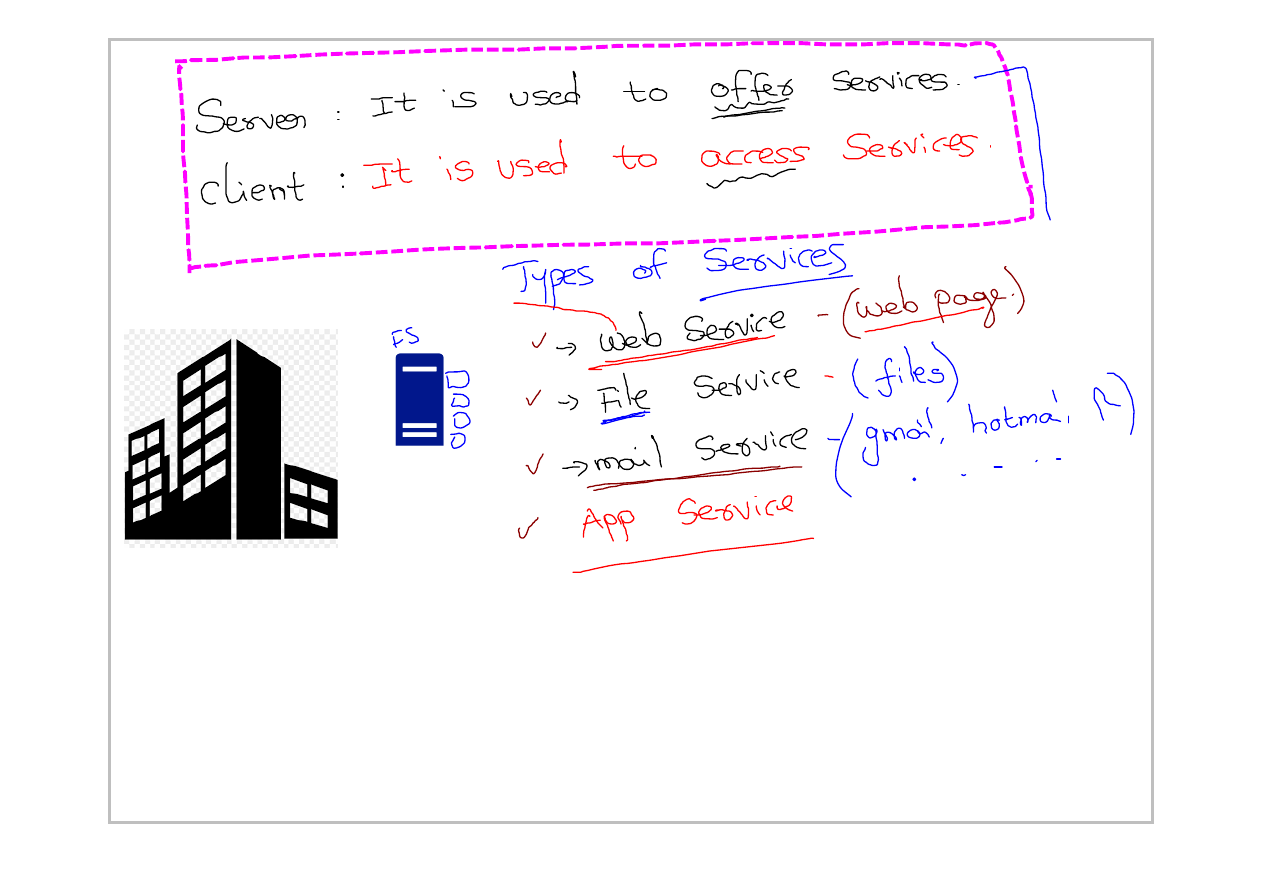 Server : It is used to offer services.
client : It is used to access services.
Types of Services
✓ → web Service - (web page.)
FS
✓ → File Service - (files)
✓ → mail Service - (gmail, hotmail,
✓ App Service